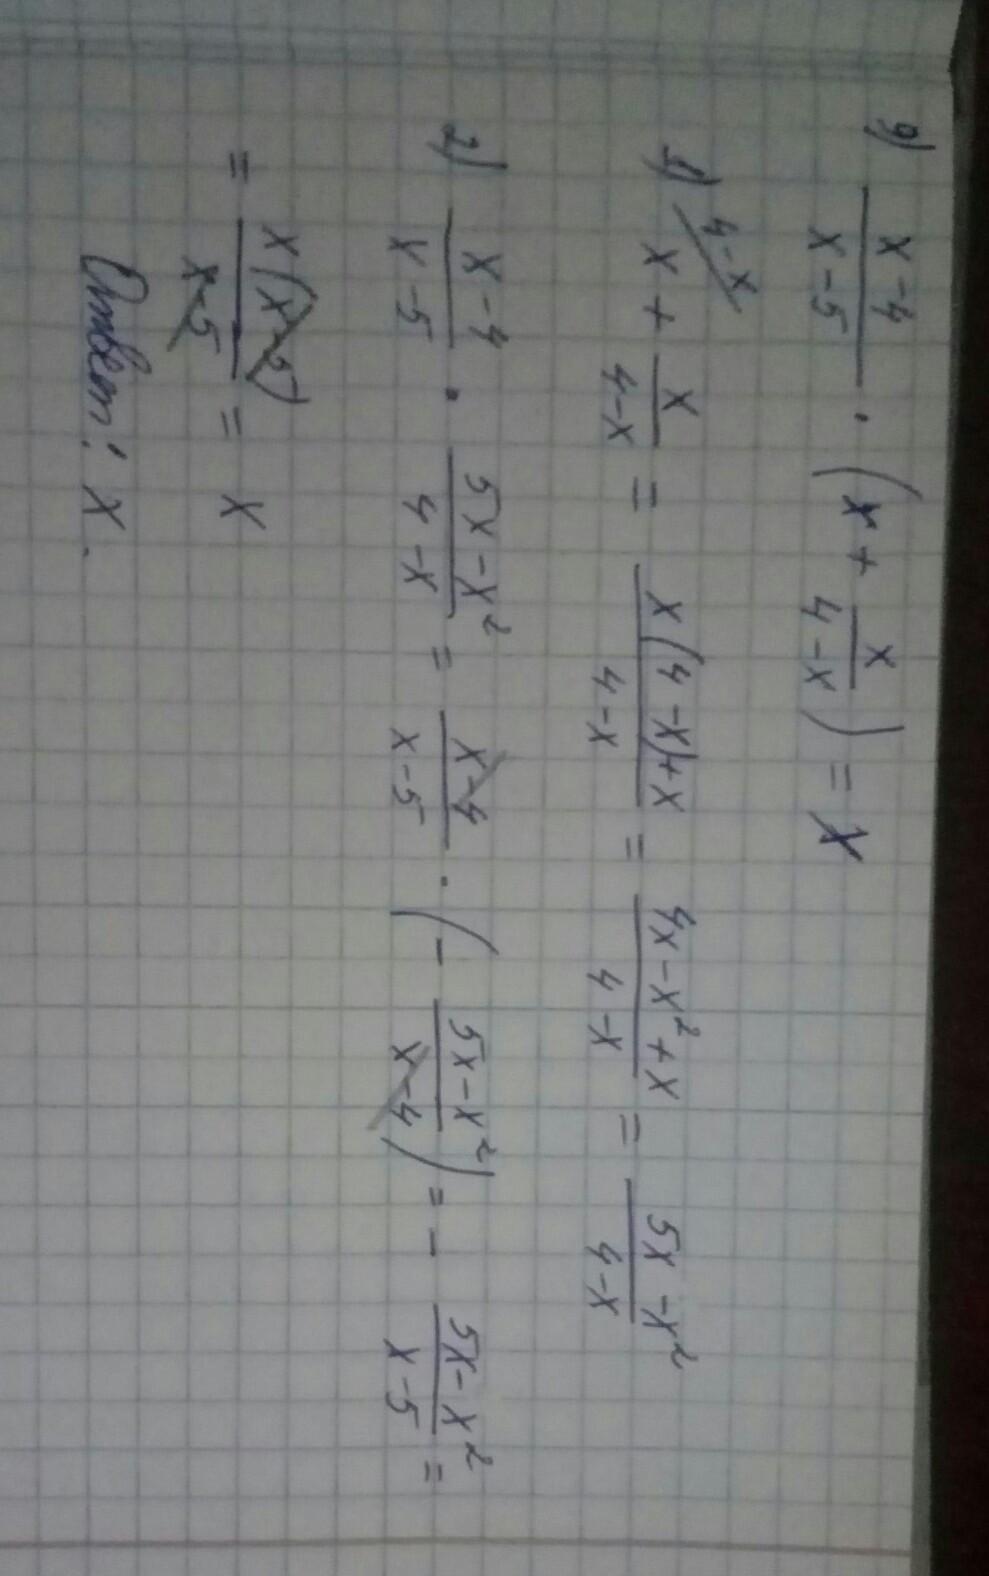 9) \frac{x-4}{x-5} · (x + \frac{x}{4-x}) = x
1) x + \frac{x}{4-x} = \frac{x(4-x)+x}{4-x} = \frac{4x-x²+x}{4-x} = \frac{5x-x²}{4-x}
4-x
2) \frac{x-4}{x-5} · \frac{5x-x²}{4-x} = \frac{x-4}{x-5} · (- \frac{5x-x²}{x-4}) = - \frac{5x-x²}{x-5} =
= \frac{x(x-5)}{x-5} = x
Ответ: x.